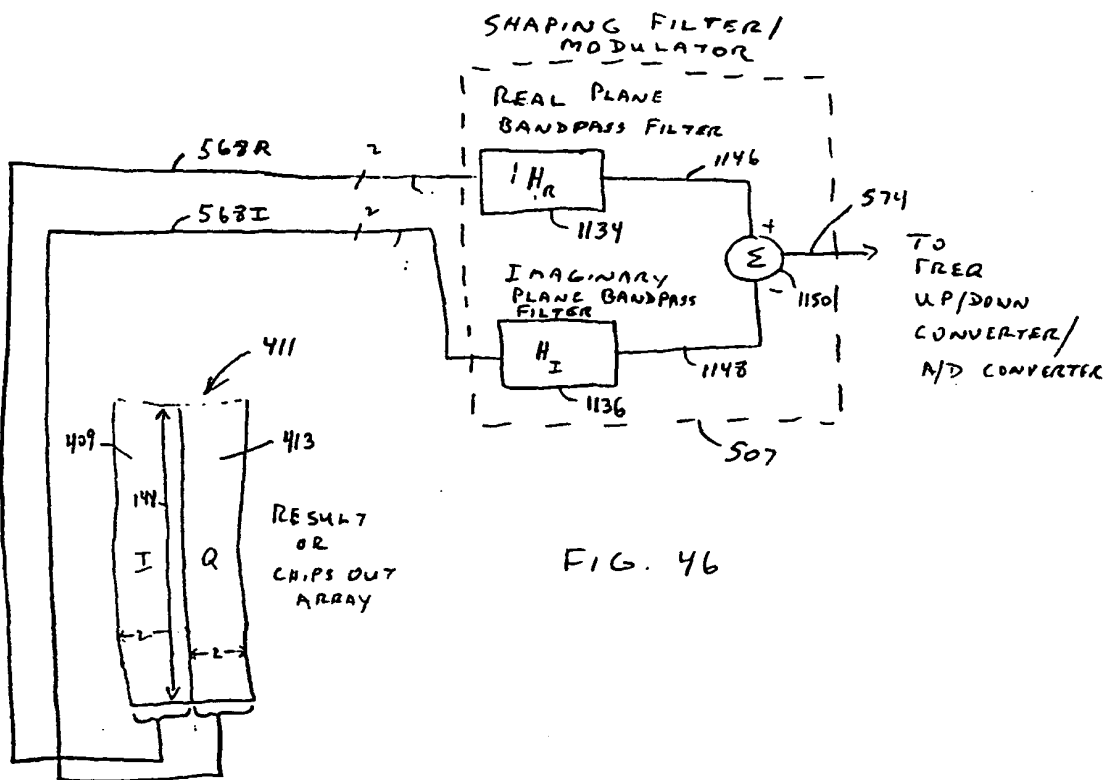 SHAPING FILTER/
MODULATOR
REAL PLANE
BANDPASS FILTER
568R
2
1146
HR
1134
574
568I
2
+
Σ
-
1150
TO
FREQ
UP/DOWN
CONVERTER/
A/D CONVERTER
IMAGINARY
PLANE BANDPASS
FILTER
HI
1148
1136
507
411
409
413
144
I
Q
RESULT
OR
CHIPS OUT
ARRAY
2
2
FIG. 46